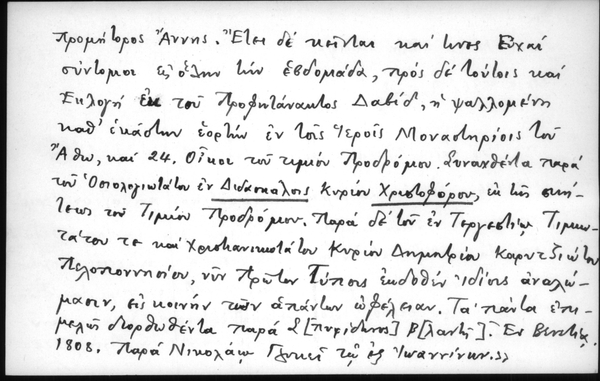 προμήτορος Ἄννης. Ἔτει δέ κεῖνται καί τινες Εὐχαί
σύντομοι εἰς ὅλην τήν ἑβδομάδα, πρός δέ τούτοις καί
Ἐκλογή ἐκ τοῦ Προφητάνακτος Δαβίδ, ἡ ψαλλομένη
καθ' ἑκάστην ἑορτήν ἐν τοῖς Ἱεροῖς Μοναστηρίοις τοῦ
Ἄθω, καί 24. Οἶκοι τοῦ τιμίου Προδρόμου. Συναχθέντα παρά
τοῦ Ὁσιολογιωτάτου ἐν Διδασκάλοις Κυρίου Χριστοφόρου, ἐκ τῆς σκή-
τεως τοῦ Τιμίου Προδρόμου. Παρά δέ τοῦ ἐν Τεργεστίῳ Τιμιω-
τάτου τε καί Χρησιμωτάτου Κυρίου Δημητρίου Καρυτζιώτου
Πελοποννησίου, νῦν πρῶτον Τύποις ἐκδοθέν ἰδίοις ἀναλώ-
μασιν, εἰς κοινήν τῶν ἁπάντων ὠφέλειαν. Τά πάντα ἐπι-
μελῶς διορθωθέντα παρά Σ[πυρίδωνος] Β[λαντῆ]. Ἐν Βενετίᾳ.
1808. Παρά Νικολάῳ Γλυκεῖ τῷ ἐξ Ἰωαννίνων.»